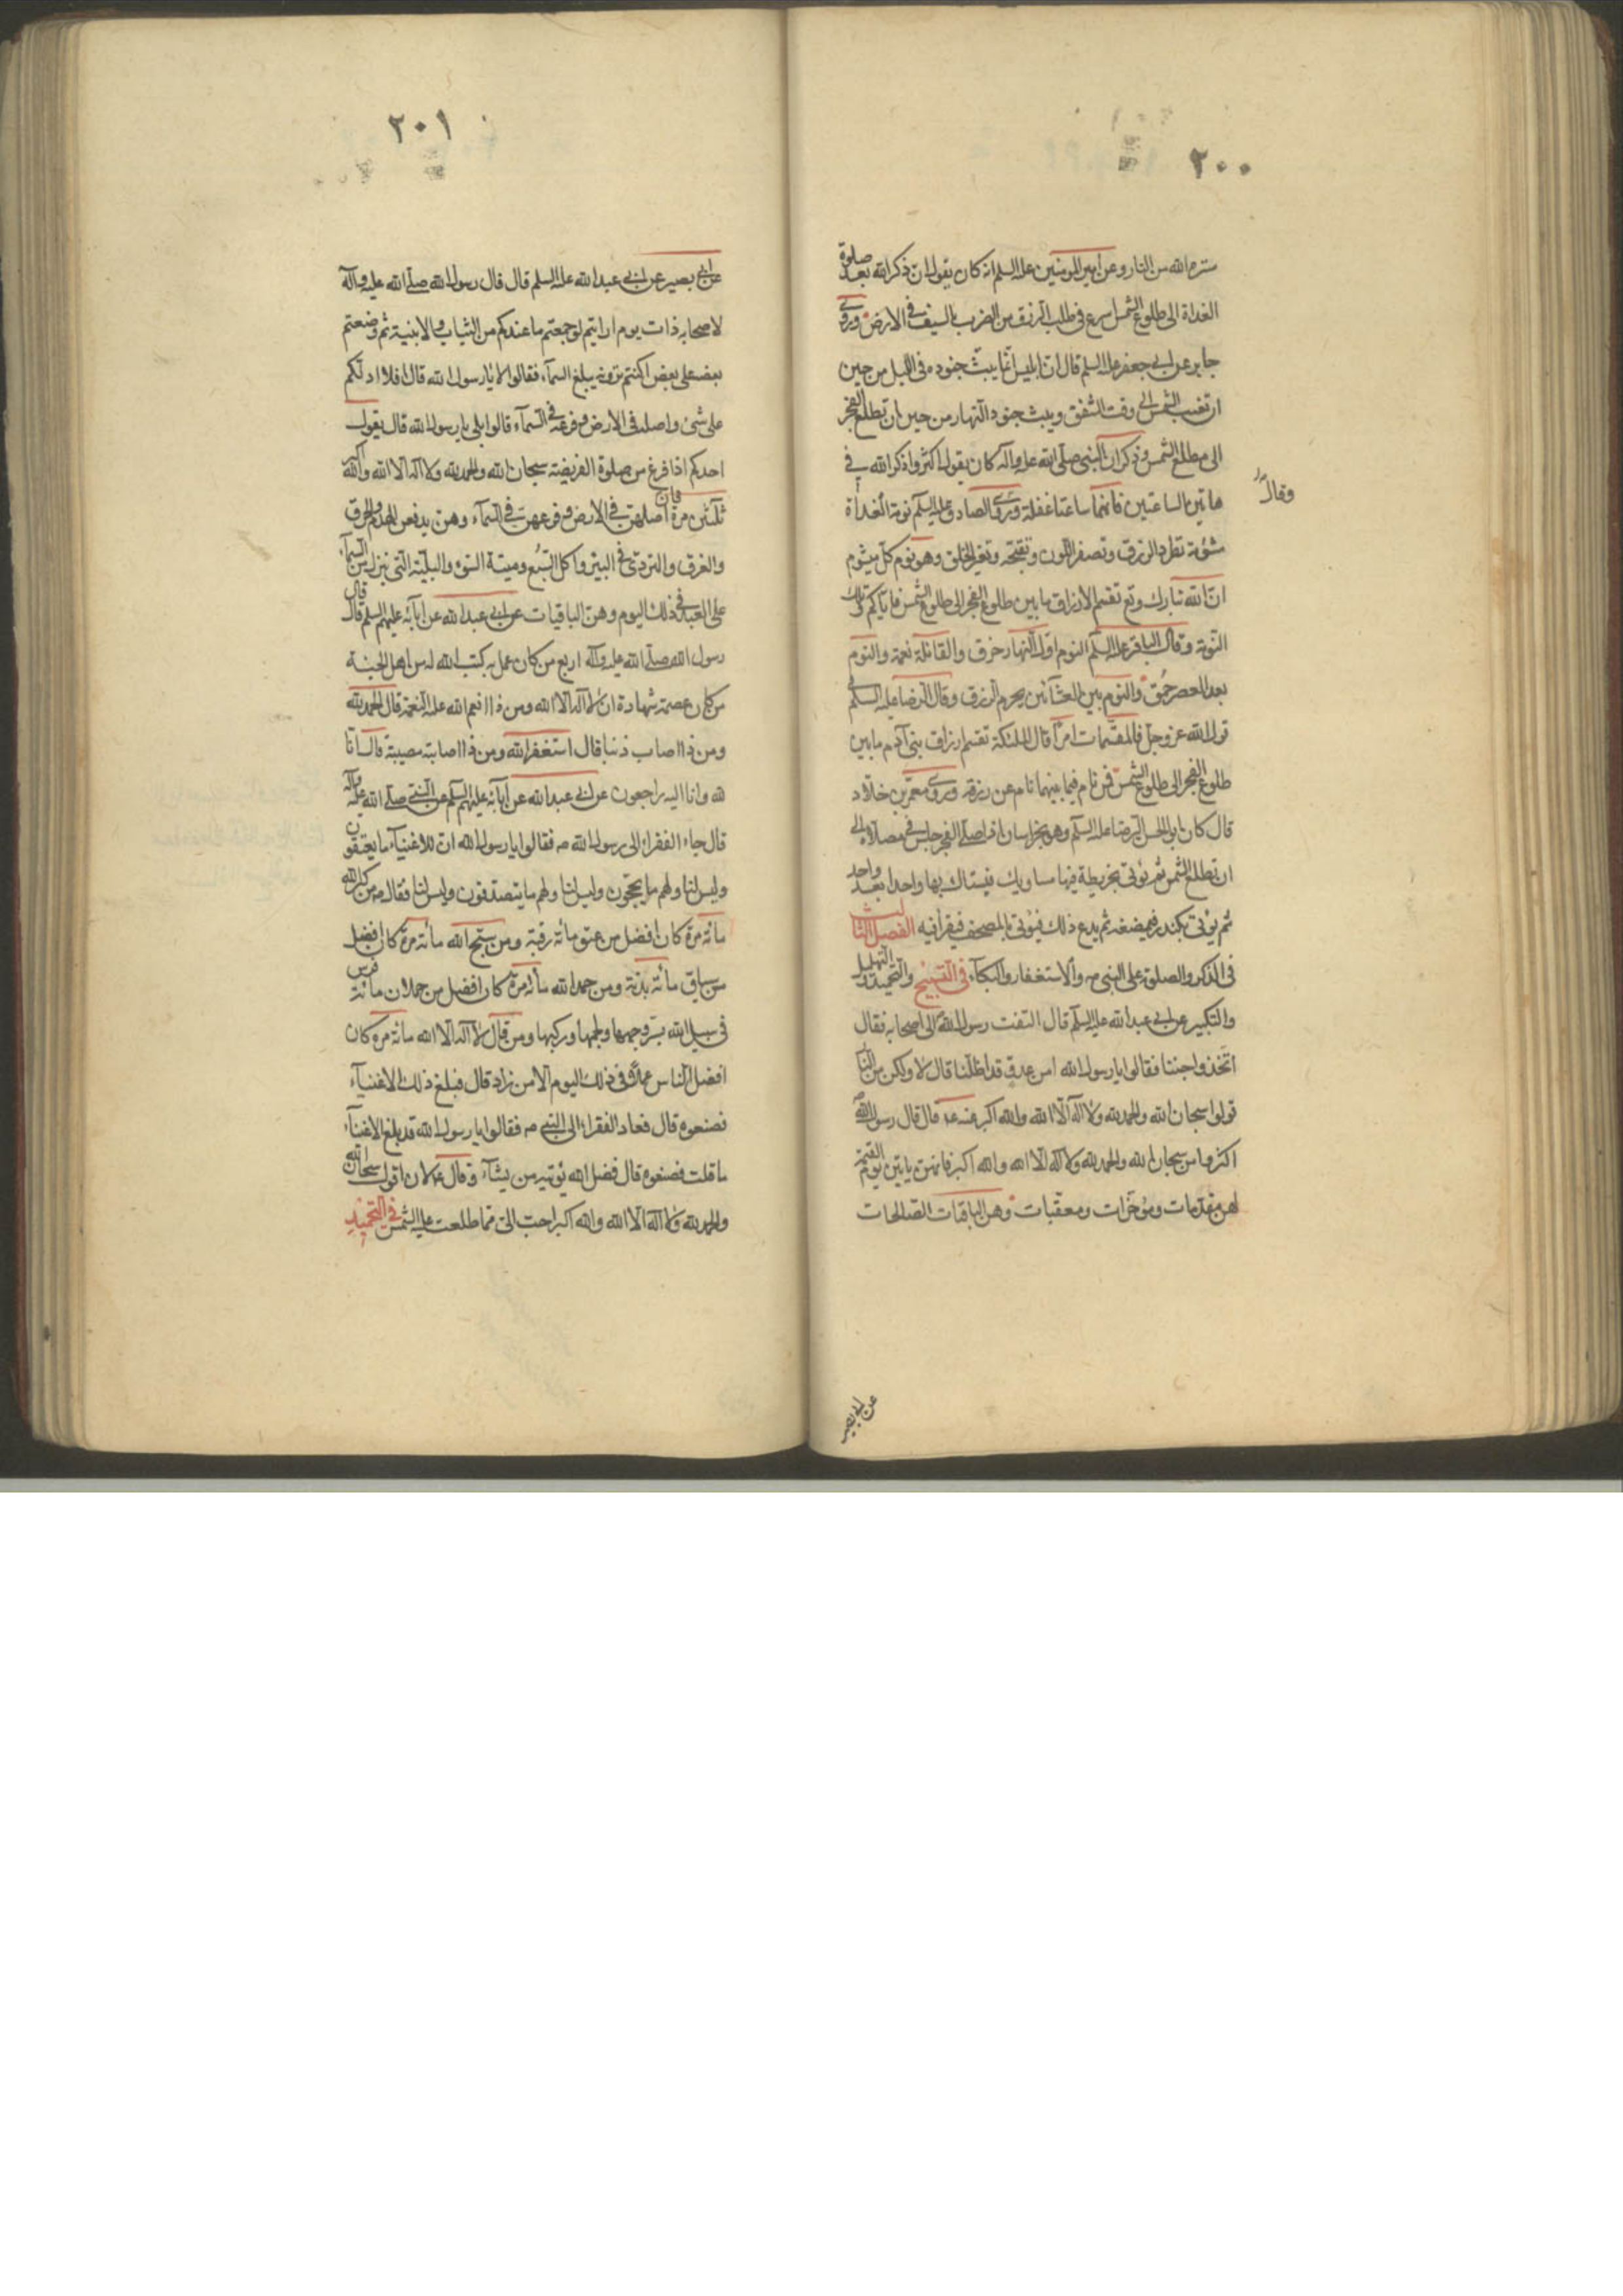 ٢٠٠
ستره الله من النار وعن امير المومنين عليه السلم انه كان يقول ان ذكر الله بعد صلوة
الغداة الى طلوع الشمس اسرع فى طلب الرزق من الضرب بالسيف فى الارض وروى
جابر عن ابى جعفر عليه السلم قال ان ابليس انما يبث جنوده فى الليل من حين
ان تغيب الشمس الى وقت الشفق ويبث جنود النهار من حين ان تطلع الفجر
الى مطلع الشمس وذكر ان النبى صلى الله عليه وآله كان يقول اكثروا ذكر الله فى
هاتين الساعتين فانهما ساعتا غفلة وروى الصادق عليه السلم نومة الغداة
وقال
مشؤمة تطرد الرزق وتصفر اللون وتقبحه وتغير الخلق وهو نوم كل ميشوم
ان الله تبارك وتع تقسم الارزاق ما بين طلوع الفجر الى طلوع الشمس فاياكم وتلك
النومة وقال الباقر عليه السلم النوم اول النهار خرق والقائلة نعمة والنوم
بعد العصر حمق والنوم بين العشائين يحرم الرزق وقال الرضا عليه السلم فى
قول الله عز وجل فالمقسمات امرا قال الملئكة تقسم ارزاق بنى آدم ما بين
طلوع الفجر الى طلوع الشمس فمن نام فيما بينهما نام عن رزقه وروى معمر بن خلاد
قال كان ابو الحسن الرضا عليه السلم وهو بخراسان اذا صلى الفجر جلس فى مصلاه الى
ان تطلع الشمس ثم يؤتى بخريطة فيها مساويك فيستاك بها واحدا بعد واحد
ثم يؤتى بكندر فيمضغه ثم يدع ذلك فيؤتى بالمصحف فيقرأ فيه الفصل الثالث
فى الذكر والصلوة على النبى ص والاستغفار والبكآء فى التسبيح والتحميد والتهليل
والتكبير عن ابى عبد الله عليه السلم قال التفت رسول الله الى اصحابه فقال
اتخذوا جننا فقالوا يا رسول الله امن عدو قد اظلنا قال لا ولكن من النار
قولوا سبحان الله والحمد لله ولا اله الا الله والله اكبر عنه ع قال قال رسول الله ص
اكثروا من سبحان الله والحمد لله ولا اله الا الله والله اكبر فانهن ياتين يوم القيمة
لهن مقدمات ومؤخرات ومعقبات وهن الباقيات الصالحات
عن ابى بصير
٢٠١
عن ابى بصير عن ابى عبد الله عليه السلم قال قال رسول الله صلى الله عليه وآله
لاصحابه ذات يوم ارايتم لو جمعتم ما عندكم من الثياب والابنية ثم وضعتم
بعضه على بعض اكنتم ترونه يبلغ السمآء فقالوا لا يا رسول الله قال افلا ادلكم
على شئ واصله فى الارض وفرعه فى السمآء قالوا بلى يا رسول الله قال يقول
احدكم اذا فرغ من صلوة الفريضة سبحان الله والحمد لله ولا اله الا الله والله اكبر
ثلثين مرة فان اصلهن فى الارض وفرعهن فى السمآء وهن يدفعن الهدم والحرق
والغرق والتردى فى البئر واكل السبع وميتة السوء والبلية التى تنزل من السمآء
على العبد فى ذلك اليوم وهن الباقيات عن ابى عبد الله عن آبائه عليهم السلم قال قال
رسول الله صلى الله عليه وآله اربع من كان عمل به كتب الله له من اهل الجنة
من كان عصمته شهادة ان لا اله الا الله ومن اذا انعم الله عليه النعمة قال الحمد لله
ومن اذا اصاب ذنبا قال استغفر الله ومن اذا اصابته مصيبة قال انا
لله وانا اليه راجعون عن ابى عبد الله عن آبائه عليهم السلم عن النبى صلى الله عليه وآله
قال جاء الفقراء الى رسول الله ص فقالوا يا رسول الله ان للاغنيآء ما يعتقون
وليس لنا ولهم ما يحجون وليس لنا ولهم ما يتصدقون وليس لنا فقال ص من كبر الله
مائة مرة كان افضل من عتق مائة رقبة ومن سبح الله مائة مرة كان افضل
من سياق مائة بدنة ومن حمد الله مائة مرة كان افضل من حملان مائة فرس
فى سبيل الله بسروجها ولجمها وركبها ومن قال لا اله الا الله مائة مرة كان
افضل الناس عملا فى ذلك اليوم الا من زاد قال فبلغ ذلك الاغنيآء
فصنعوه قال فعاد الفقراء الى النبى ص فقالوا يا رسول الله قد بلغ الاغنيآء
ما قلت فصنعوه قال فضل الله يؤتيه من يشآء وقال ع لان اقول سبحان الله
والحمد لله ولا اله الا الله والله اكبر احب الى مما طلعت عليه الشمس فى التحميد